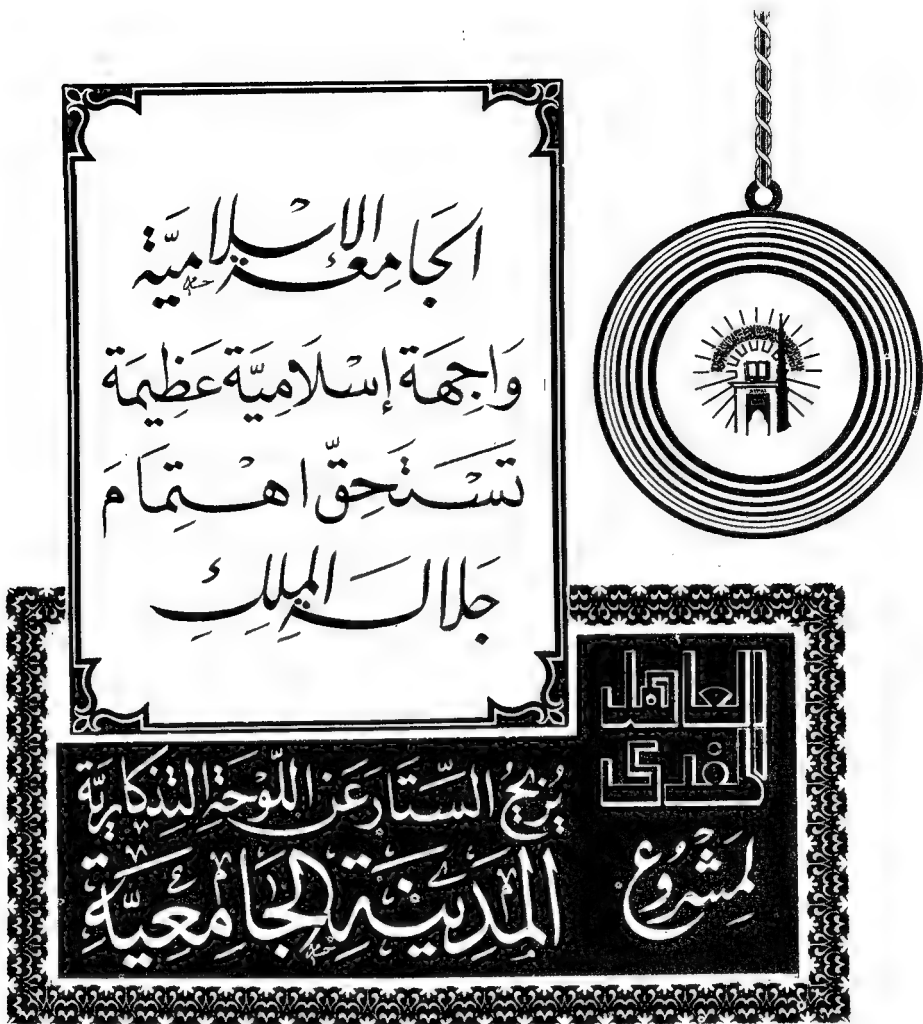 الجَامعَة الإسْلاميَّة
وَاجِهَة إسْلَامِيَّة عَظِيمَة
تَسْتَحِقّ اهْتِمَامَ
جَلالة المَلِكِ
العاهل
المفدى
يُزيحُ السّتَارَ عَن اللّوحَة التذكاريَّة
لمَشْرُوع
المَدِينَة الجَامِعيَّةِ